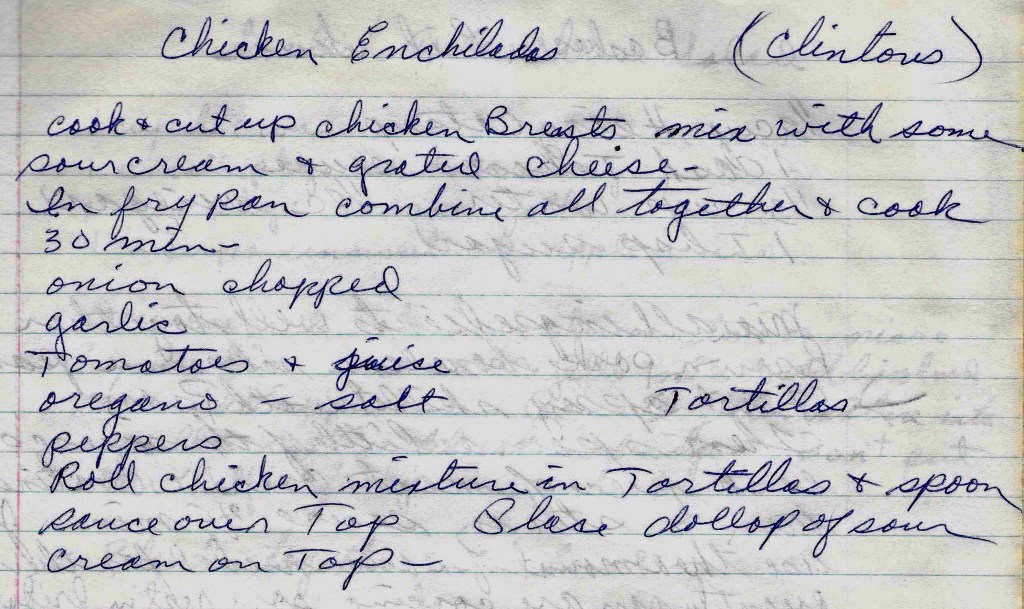 Chicken Enchiladas (Clintons)
cook & cut up chicken Breasts mix with some
sour cream & grated cheese -
In fry pan combine all together & cook
30 min -
onion chopped
garlic
Tomatoes & juice
oregano - salt Tortillas
peppers
Roll chicken mixture in Tortillas & spoon
sauce over Top Place dollop of sour
cream on Top -